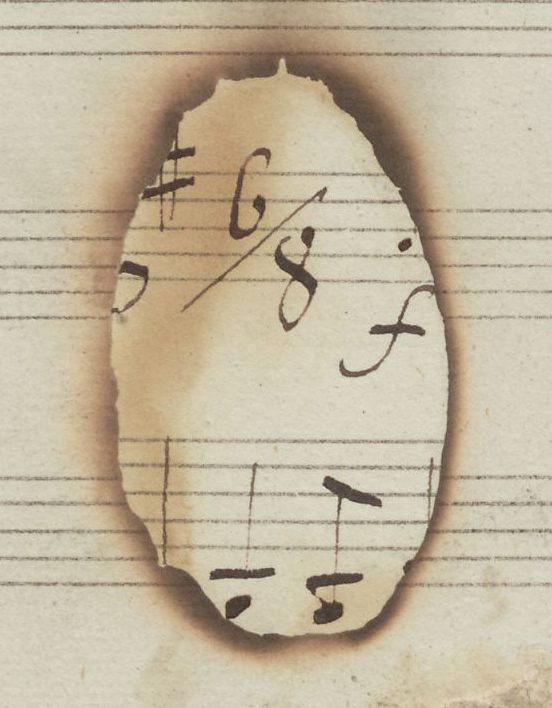 6/8
f